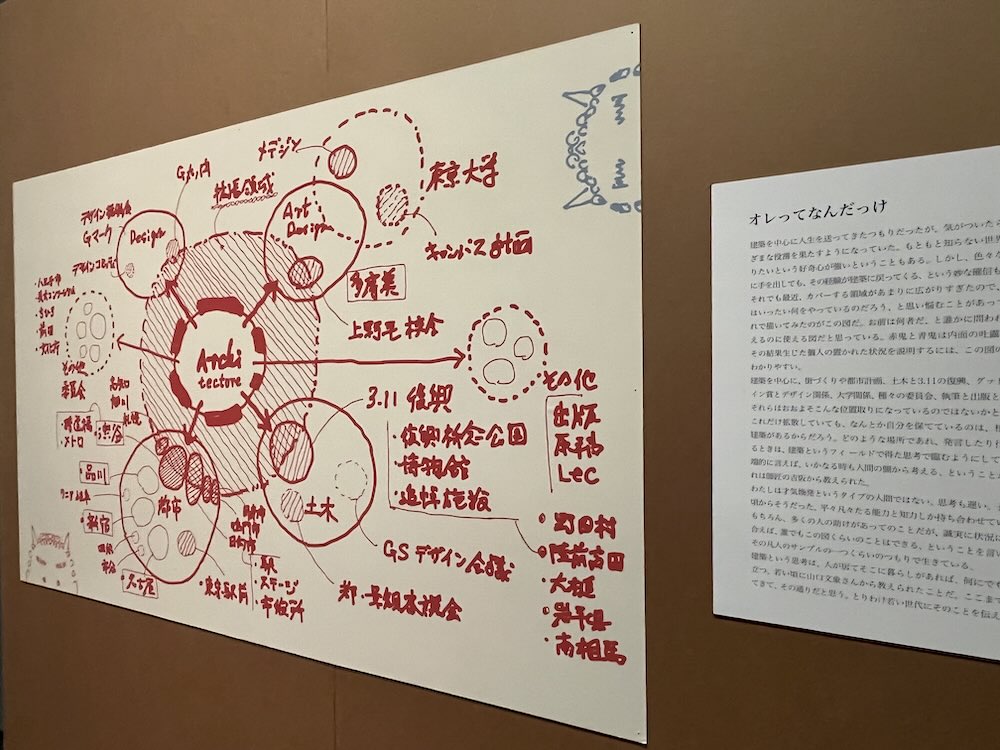 Gみら
メデジン
拡張領域
東京大学
デザイン
Gマーク
Design
Art
Design
キャンパス計画
デザインコミ
多摩美
上野毛 校舎
Archi
tecture
その他
委員会
3.11 復興
・復興祈念公園
・博物館
・追悼施設
その他
出版
原稿
LEC
旭川
札幌
渋谷
・メトロ
品川
リニア
新宿
名古屋
都市
土木
東京駅前
・駅
・ステージ
・市役所
GS デザイン会議
都・景観審議会
・野田村
・陸前高田
・大槌
・岩手県
・南相馬
オレってなんだっけ
建築を中心に人生を送ってきたつもりだったが、気がついたら
ざまな役割を果たすようになっていた。もともと知らない世界
りたいという好奇心が強いということもある。しかし、色々な
に手を出しても、その経験が建築に戻ってくる、という妙な確信も
それでも最近、カバーする領域があまりに広がりすぎたので、
はいったい何をやっているのだろう、と思い悩むことがあっ
れで描いてみたのがこの図だ。お前は何者だ、と誰かに問われ
えるのに使える図だと思っている。赤鬼と青鬼は内面の吐露
その結果生じた個人の置かれた状況を説明するには、この図の
わかりやすい。
建築を中心に、街づくりや都市計画、土木と3.11の復興、グッド
イン賞とデザイン関係、大学関係、種々の委員会、執筆と出版と
それらはおおよそこんな位置取りになっているのではないかと
これだけ拡散していても、なんとか自分を保てているのは、
建築があるからだろう。どのような場所であれ、発言したり行
るときは、建築というフィールドで得た思考で臨むようにして
端的に言えば、いかなる時も人間の側から考える、ということ
れは師匠の吉阪から教えられた。
わたしは才気煥発というタイプの人間ではない。思考も遅い。
頃からそうだった。平々凡々たる能力と知力しか持ち合わせて
もちろん、多くの人の助けがあってのことだが、誠実に状況に
合えば、誰でもこの図くらいのことはできる、ということを言い
その凡人のサンプルの一つくらいのつもりで生きている。
建築という思考は、人が居てそこに暮らしがあれば、何にでも
立つ。若い頃に山口文象さんから教えられたことだ。ここま
てきて、その通りだと思う。とりわけ若い世代にそのことを伝え